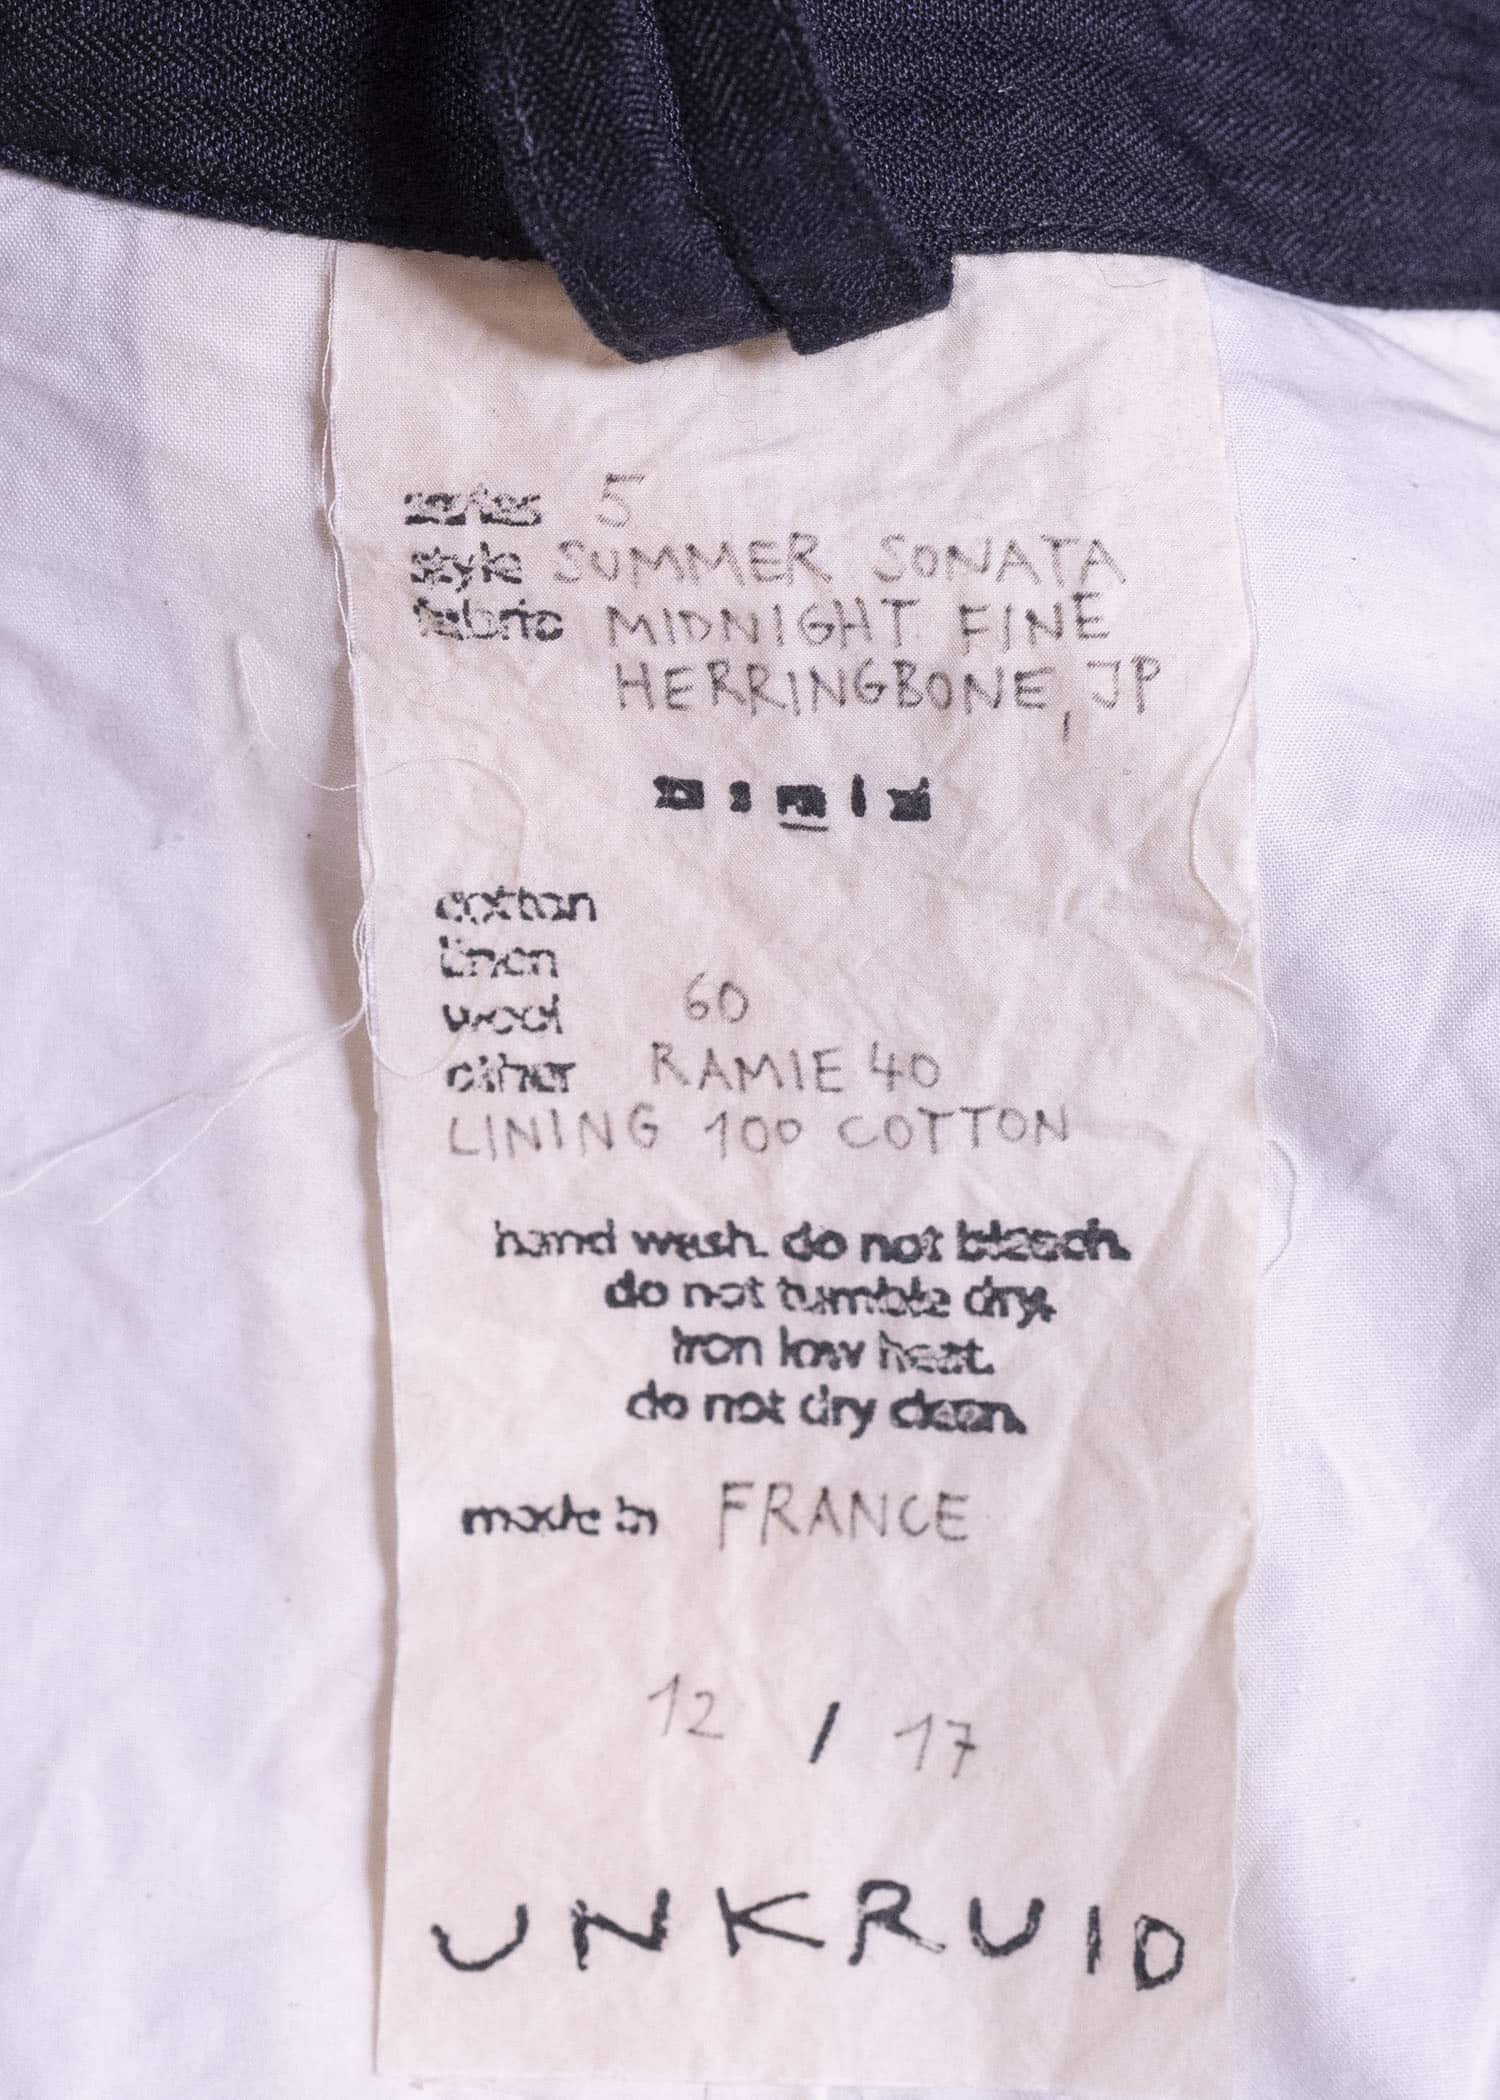 series 5
style SUMMER SONATA
fabric MIDNIGHT FINE
HERRINGBONE, JP
xs s m l xl
cotton
linen
wool 60
other RAMIE 40
LINING 100 COTTON
hand wash. do not bleach.
do not tumble dry.
iron low heat.
do not dry clean.
made in FRANCE
12 / 17
UNKRUID